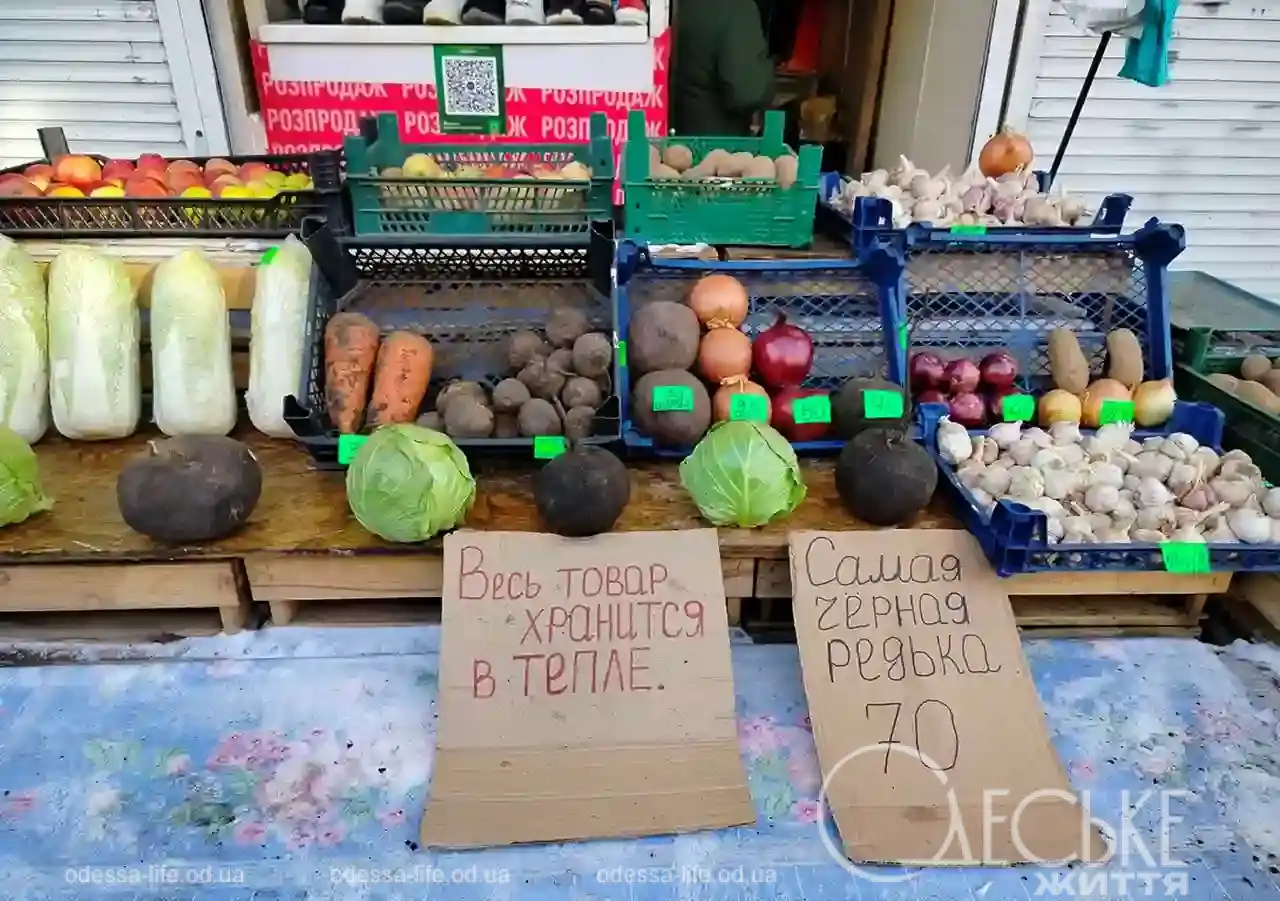 РОЗПРОДАЖ РОЗПРОДАЖ
РОЗПРОДАЖ
Весь товар
хранится
в тепле.
Самая
чёрная
редька
70
Одеське
життя
odessa-life.od.ua
odessa-life.od.ua
odessa-life.od.ua